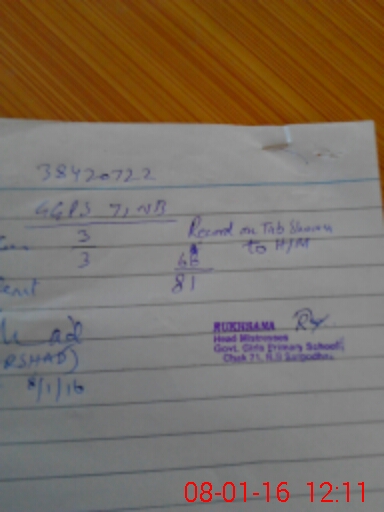 38420722
GGPS 71 NB
3 Record on Tab Shown
3 to H/M
81
RSHAD)
8/1/16
RUKHSANA
Head Mistress
Govt. Girls Primary School
Chak 71, N.B Sargodha.
08-01-16 12:11